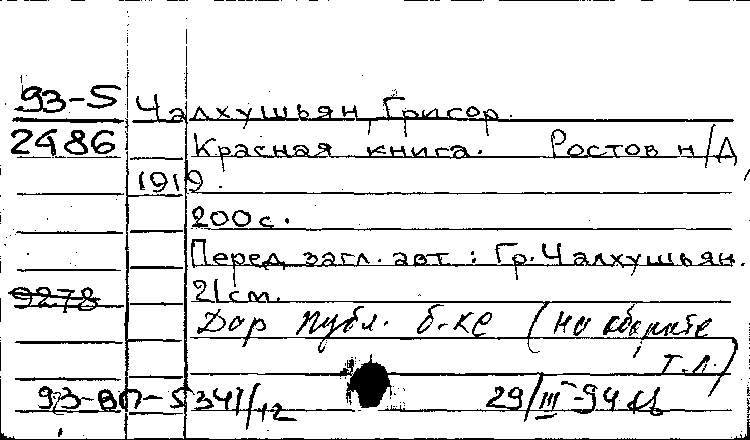 93-5 Чалхушьян, Григор.
2486 Красная книга. Ростов н/Д,
1919.
200 с.
Перед загл. авт.: Гр. Чалхушьян.
9278 21 см.
Дар Публ. б-ке (на обороте
т.л.)
93-ВП-5341/12 29/III-94